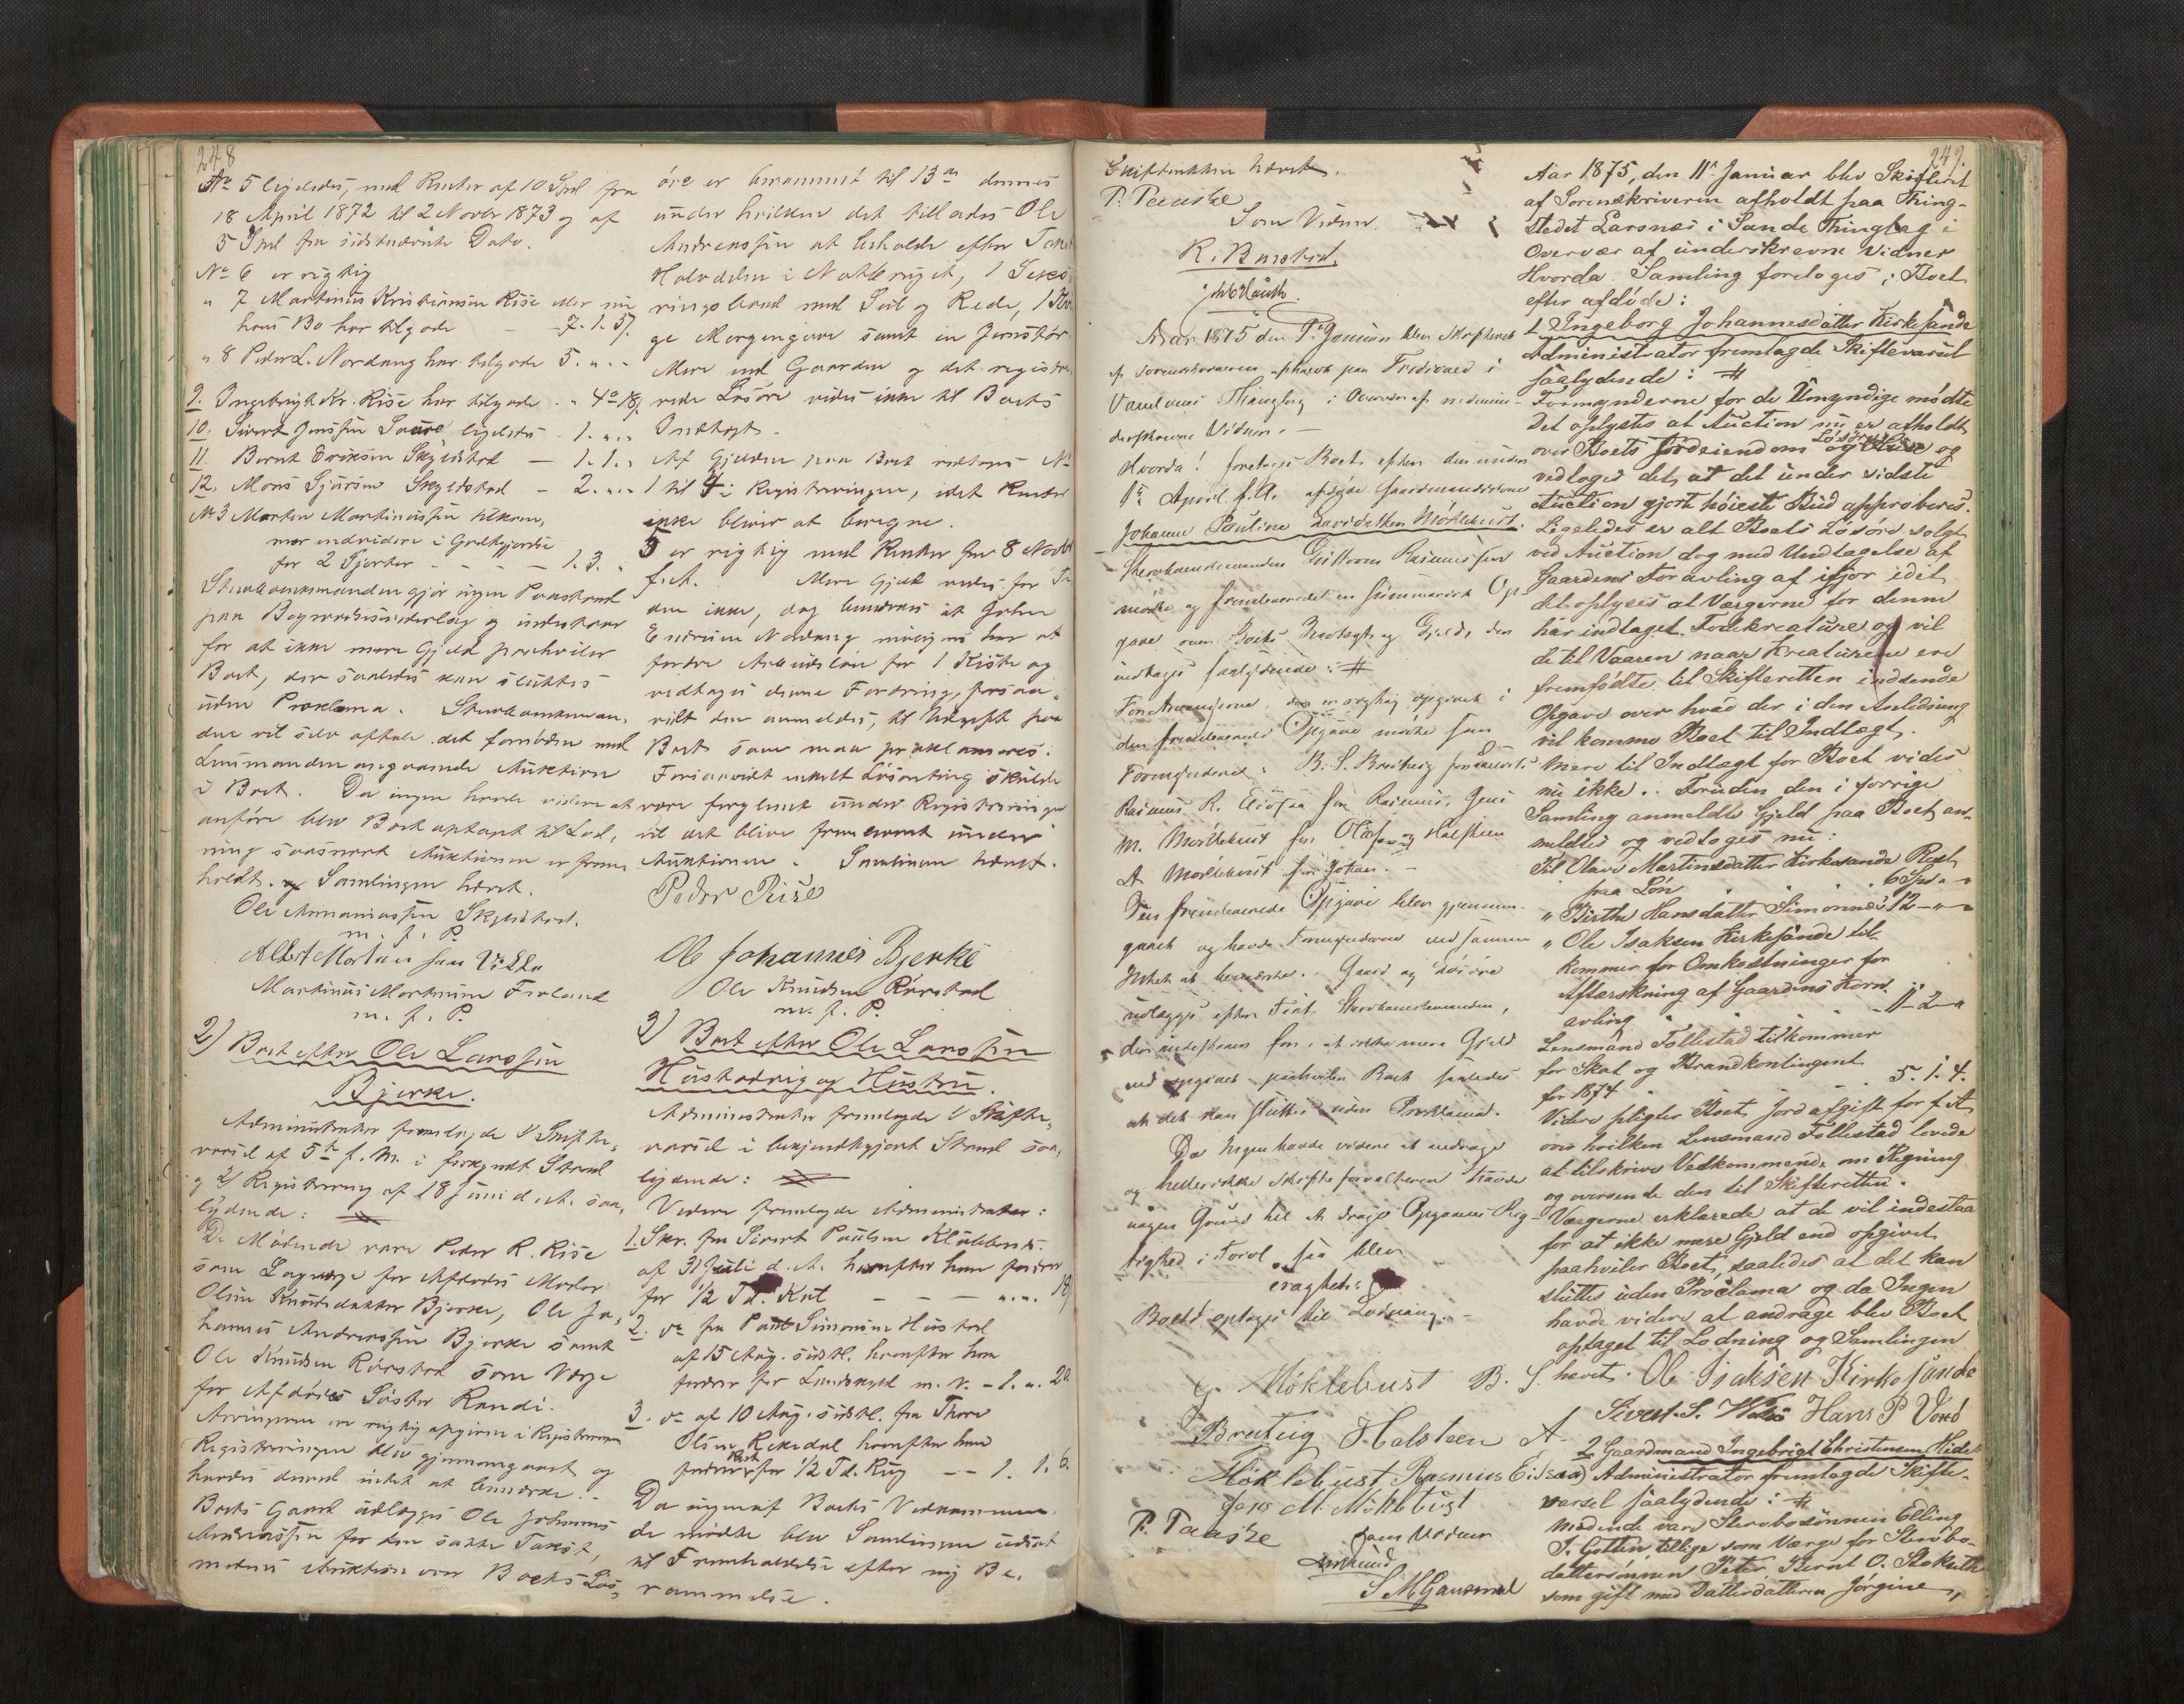 248
No 5 ligeledes, med Renter af 10 Spd fra
18 April 1872 til 2 Novbr 1873 og af
5 Spd fra sidstnævnte Dato.
No 6 er rigtig
" 7 Martinus Kristiansen Riise eller nu
hans Bo har tilgode — 7. 1. 5.
" 8 Peder L. Nordang har tilgode 5. " -
9. Ingebrigt Kr. Riise har tilgode - " 4 " 18
10. Sivert Jensen Saure ligeledes 1. " "
11. Bernt Eriksen Skjeldstad — 1. 1. "
12. Mons Sjursen Skjeldstad - 2. " "
No 3 Morten Martinussen tilkom,
mer endvidere i
for 2 Hjorter - - - - 1. 3. "
Stervboenkemanden gjør ingen Paastand
paa Begravelsesudlæg og indestaar
for at ikke mere Gjeld paahviler
Boet, der saaledes kan sluttes
uden Proklama. Stervboenkeman,
den vil selv aftale det fornødne med
Lensmanden angaaende Auktion
i Boet. Da ingen havde videre at
anføre blev Boet optaget til Lod,
ning saasnart Auktionen er frem
holdt. og Samlingen hævet.
Ole Skjeldstad.
m. f. P.
Albert Mortensen
Martinus Martinsen
m. f. P.
2) Boet efter Ole Larssen
Bjerke.
Administrator fremlagde 1/ Skifte,
varsel af 5te f. M. i forkyndt Stand
og 2/ Registrering af 18 Juni d. A. saa,
lydende:
De Mødende vare Peder R. Riise
som Lagværge for Afdødes Moder
Oline Knudsdatter Bjerke, Ole Jo,
hannes Andreassen Bjerke samt
Ole Knudsen Rørstad som Værge
for Afdødes Søster Randi.
Arvingerne er rigtig opgivne i Registreringen
Registreringen blev gjennemgaaet og
havdes derved intet at bemærke.
Boets Gaard udlægges Ole Johannes
Andreassen for den satte Taxt,
medens Auktion over Boets Løs,
øre er berammet til 13de dennes
under hvilken det tillades Ole
Andreassen at beholde efter Taxt
Halvdelen i Notbruget, 1 Sexæ,
ringsbaad med Seil og Rede, 1
samt en Jernstør
Mere end Gaarden og det registre,
rede Løsøre vides ikke til Boets
Indtægt.
Af Gjelden paa Boet vedtages No
1 til 4 i Registreringen, idet Renter
ikke bliver at beregne.
5 er rigtig med Renter fra 8 Novbr
f. A. Mere Gjeld vides for Ti
den ikke, dog bemærkes at Johan
Nordang muligens har at
fordre Arbeidsløn for 1 Kiste og
vedtages denne Fordring, forsaa,
vidt den anmeldes, til Udgift paa
Boet som maa proklameres.
Forsaavidt enkelt Løsøreting skulde
være forglemt under Registreringen
vil det blive fremkommet under
Auktionen. Samlingen hævet.
Peder Riise
Ole Johannes Bjerke
Ole Knudsen Rørstad
m. f. P.
3) Boet efter Ole Larssen
Hustadvig og Hustru.
Administrator fremlagde 1/ Skifte,
varsel i bekjendtgjort Stand saa,
lydende:
Videre fremlagde Administrator:
1. Skr. fra Sivert Paulsen
af 31 Juli d. A. hvorefter han fordrer
for 1/2 Td. - - - ". ". 18
2. do fra Paul Simonsen Hustad
af 15 Aug. sidstl. hvorefter han
fordrer for Landskyld m. v. - 1. ". 20
3. do af 10 Aug. sidstl. fra Thore
Olsen hvorefter han
fordrer Rest for 1/2 Td. Rug - - 1. 1. 6
Da ingen af Boets Vedkommen
de mødte blev Samlingen udsat
til Fremholdelse efter ny Be,
rammelse.
249.
Skifteretten hævet.
P. Paaske
Som Vidner.
R. Buestad.
Aar 1875 den 7de Januar blev Skifteret
af Sorenskriveren afholdt paa Fredsvold i
Vanelvens Thinglag i Overvær af nedenun-
derskrevne Vidner. —
Hvorda! foretoges Boet efter den under
1te April f. A. afdøde Gaardmandskone
Johanne Pauline Davidsdatter Møklebust.
Stervboenkemanden Guttorm Rasmussen
mødte og fremleverede en summarisk Op-
gave over Boets Indtægt og Gjeld, den
vedtages saalydende:
For Arvingerne, der er rigtig opgivet i
den fremleverede Opgave mødte som
Formynderne: B. S. Brauteig for Laurits
Rasmus R. Eidsaa for Rasmus, Jens
M. Møklebust for Oluf og Halsteen
A Møklebust for Johan. —
Den fremleverede Opgave blev gjennem-
gaaet og havde Formynderne ved samme
Intet at bemærke. Gaard og Løsøre
udlægges efter Taxt Stervboenkemanden,
der indestaar for, at ikke mere Gjeld
end opgivet paahviler Boet saaledes
at det kan sluttes uden Proklama.
Da Ingen havde videre at andrage
og heller ikke Skifteforvalteren havde
nogen Grund til at drage Opgavens Rig-
tighed i Tvivl saa blev
eragtet:
Boet optages til Lodning. -
G. Møklebust B. S.
Brauteig Halsteen A
Møklebust Rasmus Eidsaa
Jens M. Møklebust
P. Paaske som Vidner
S M Gausmel
Aar 1875, den 11te Januar blev Skifteret
af Sorenskriveren afholdt paa Thing-
stedet Larsnæs i Sande Thinglag i
Overvær af underskrevne Vidner
Hvorda Samling foretoges i Boet
efter afdøde:
1. Ingeborg Johannesdatter Kirkesande
Administrator fremlagde Skiftevarsel
saalydende:
Formynderne for de Umyndige mødte
Det oplystes at Auction nu er afholdt
over Boets Jordeiendom og Løsøre og
vedtoges det, at det under sidste
Auction gjort høieste Bud approberes.
Ligeledes er alt Boets Løsøre solgt
ved Auction dog med Undtagelse af
Gaardens Foravling af ifjor idet
det oplyses at Værgerne for denne
har indtaget Foderkreature og vil
de til Vaaren naar Kreaturene ere
fremfødte til Skifteretten indsende
Opgave over hvad der i den Anledning
vil komme Boet til Indtægt.
Mere til Indtægt for Boet vides
nu ikke. Foruden den i forrige
Samling anmeldte Gjeld paa Boet an-
meldtes og vedtoges nu:
Til Olave Martinsdatter Kirkesande Rest
paa Løn " " " 6 Spd " "
" Birthe Hansdatter Simonnes 12 - " -
" Ole Isaksen Kirkesande til-
kommer for Omkostninger for
Aftærskning af Gaardens Korn-
avling " " " 11 - 2 - "
Lensmand Follestad tilkommer
for Skat og Brandkontingent
for 1874 . . . 5. 1. 4.
Videre pligter Boet Jordafgift for f. A
om hvilken Lensmand Follestad lovede
at tilskrive Vedkommende om Regning
og oversende den til Skifteretten.
Værgerne erklærede at de vil indestaa
for at ikke mere Gjeld end opgivet
paahviler Boet, saaledes at det kan
sluttes uden Proclama og da Ingen
havde videre at andrage blev Boet
optaget til Lodning og Samlingen
hævet. Ole Isaksen Kirkesande
Sivert. S. Hans P Vord
2 Gaardmand Ingebrigt Christensen
Administrator fremlagde Skifte-
varsel saalydende:
Mødende vare Stervbosønnen Elling
I. Gotten tillige som Værge for Stervbo-
dattersønnen Peter, Bernt O.
som gift med Datterdatteren Jørgine,